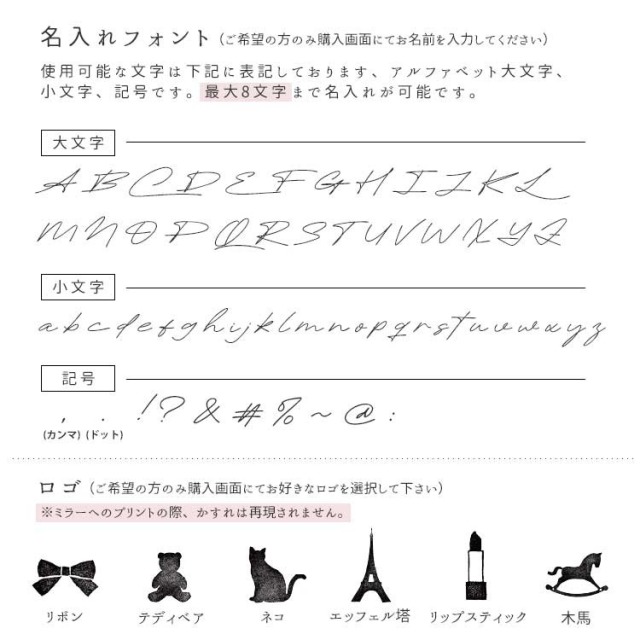 名入れフォント（ご希望の方のみ購入画面にてお名前を入力してください）
使用可能な文字は下記に表記しております、アルファベット大文字、
小文字、記号です。最大8文字まで名入れが可能です。
大文字
A B C D E F G H I J K L
M N O P Q R S T U V W X Y Z
小文字
a b c d e f g h i j k l m n o p q r s t u v w x y z
記号
, . ! ? & # % ~ @ :
(カンマ) (ドット)
ロゴ（ご希望の方のみ購入画面にてお好きなロゴを選択して下さい）
※ミラーへのプリントの際、かすれは再現されません。
リボン テディベア ネコ エッフェル塔 リップスティック 木馬